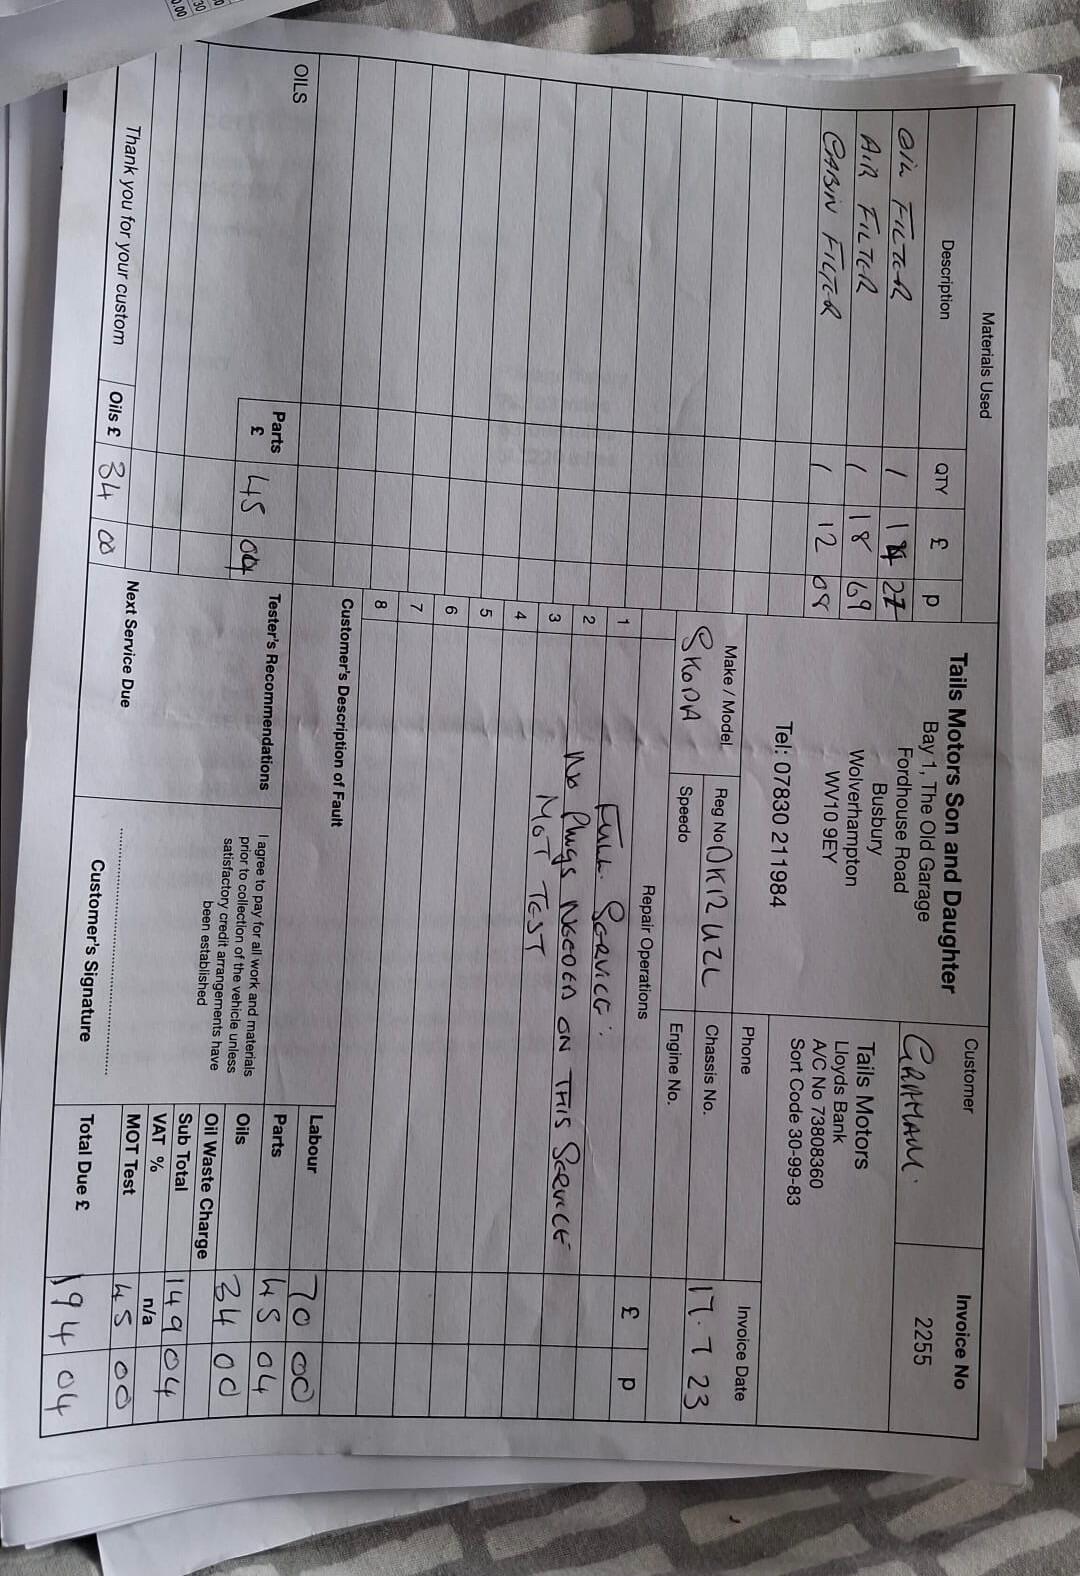 Materials Used
Description QTY £ p
OIL FILTER 1 14 27
AIR FILTER 1 18 69
CABIN FILTER 1 12 08
OILS
Parts £ 45 04
Thank you for your custom Oils £ 34 00
Tails Motors Son and Daughter
Bay 1, The Old Garage
Fordhouse Road
Busbury
Wolverhampton
WV10 9EY
Tel: 07830 211984
Customer
Invoice No
2255
Tails Motors
Lloyds Bank
A/C No 73808360
Sort Code 30-99-83
Phone
Invoice Date
17.7 23
Make / Model
SKODA
Reg No DK12 UZL
Chassis No.
Speedo
Engine No.
Repair Operations £ p
1 FULL SERVICE:
2 No Plugs NEEDED ON THIS SERVICE
3 MOT TEST
4
5
6
7
8
Customer's Description of Fault
Tester's Recommendations
Next Service Due
I agree to pay for all work and materials
prior to collection of the vehicle unless
satisfactory credit arrangements have
been established
Customer's Signature
Labour 70 00
Parts 45 04
Oils 34 00
Oil Waste Charge
Sub Total 149 04
VAT % n/a
MOT Test 45 00
Total Due £ 194 04